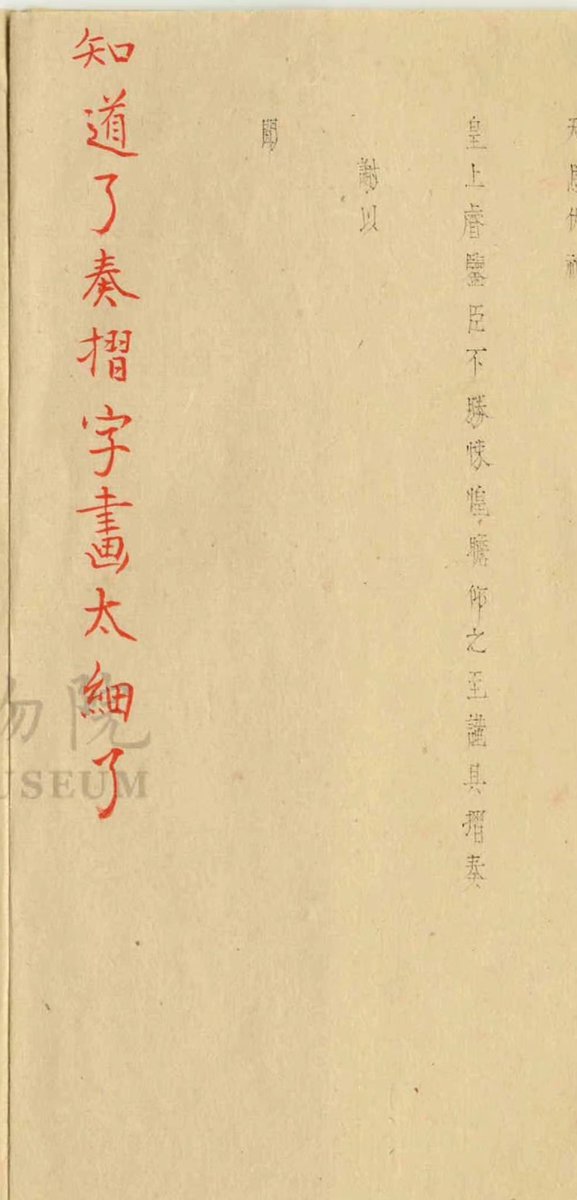 皇上睿鑒臣不勝悚惶瞻仰之至謹具摺奏
謝以
聞
知道了奏摺字畫太細了
物院
USEUM